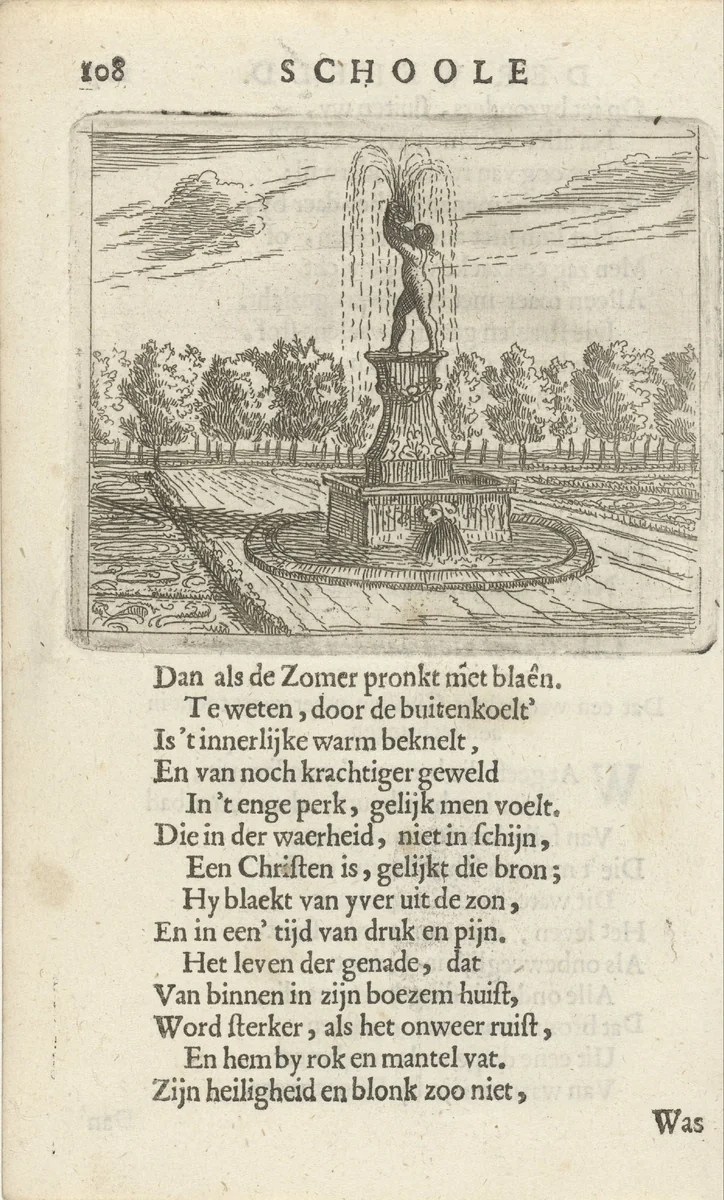 108 SCHOOLE
Dan als de Zomer pronkt met blaên.
Te weten, door de buitenkoelt'
Is 't innerlijke warm beknelt,
En van noch krachtiger geweld
In 't enge perk, gelijk men voelt.
Die in der waerheid, niet in ſchijn,
Een Chriſten is, gelijkt die bron;
Hy blaekt van yver uit de zon,
En in een' tijd van druk en pijn.
Het leven der genade, dat
Van binnen in zijn boezem huiſt,
Word ſterker, als het onweer ruiſt,
En hem by rok en mantel vat.
Zijn heiligheid en blonk zoo niet,
Was